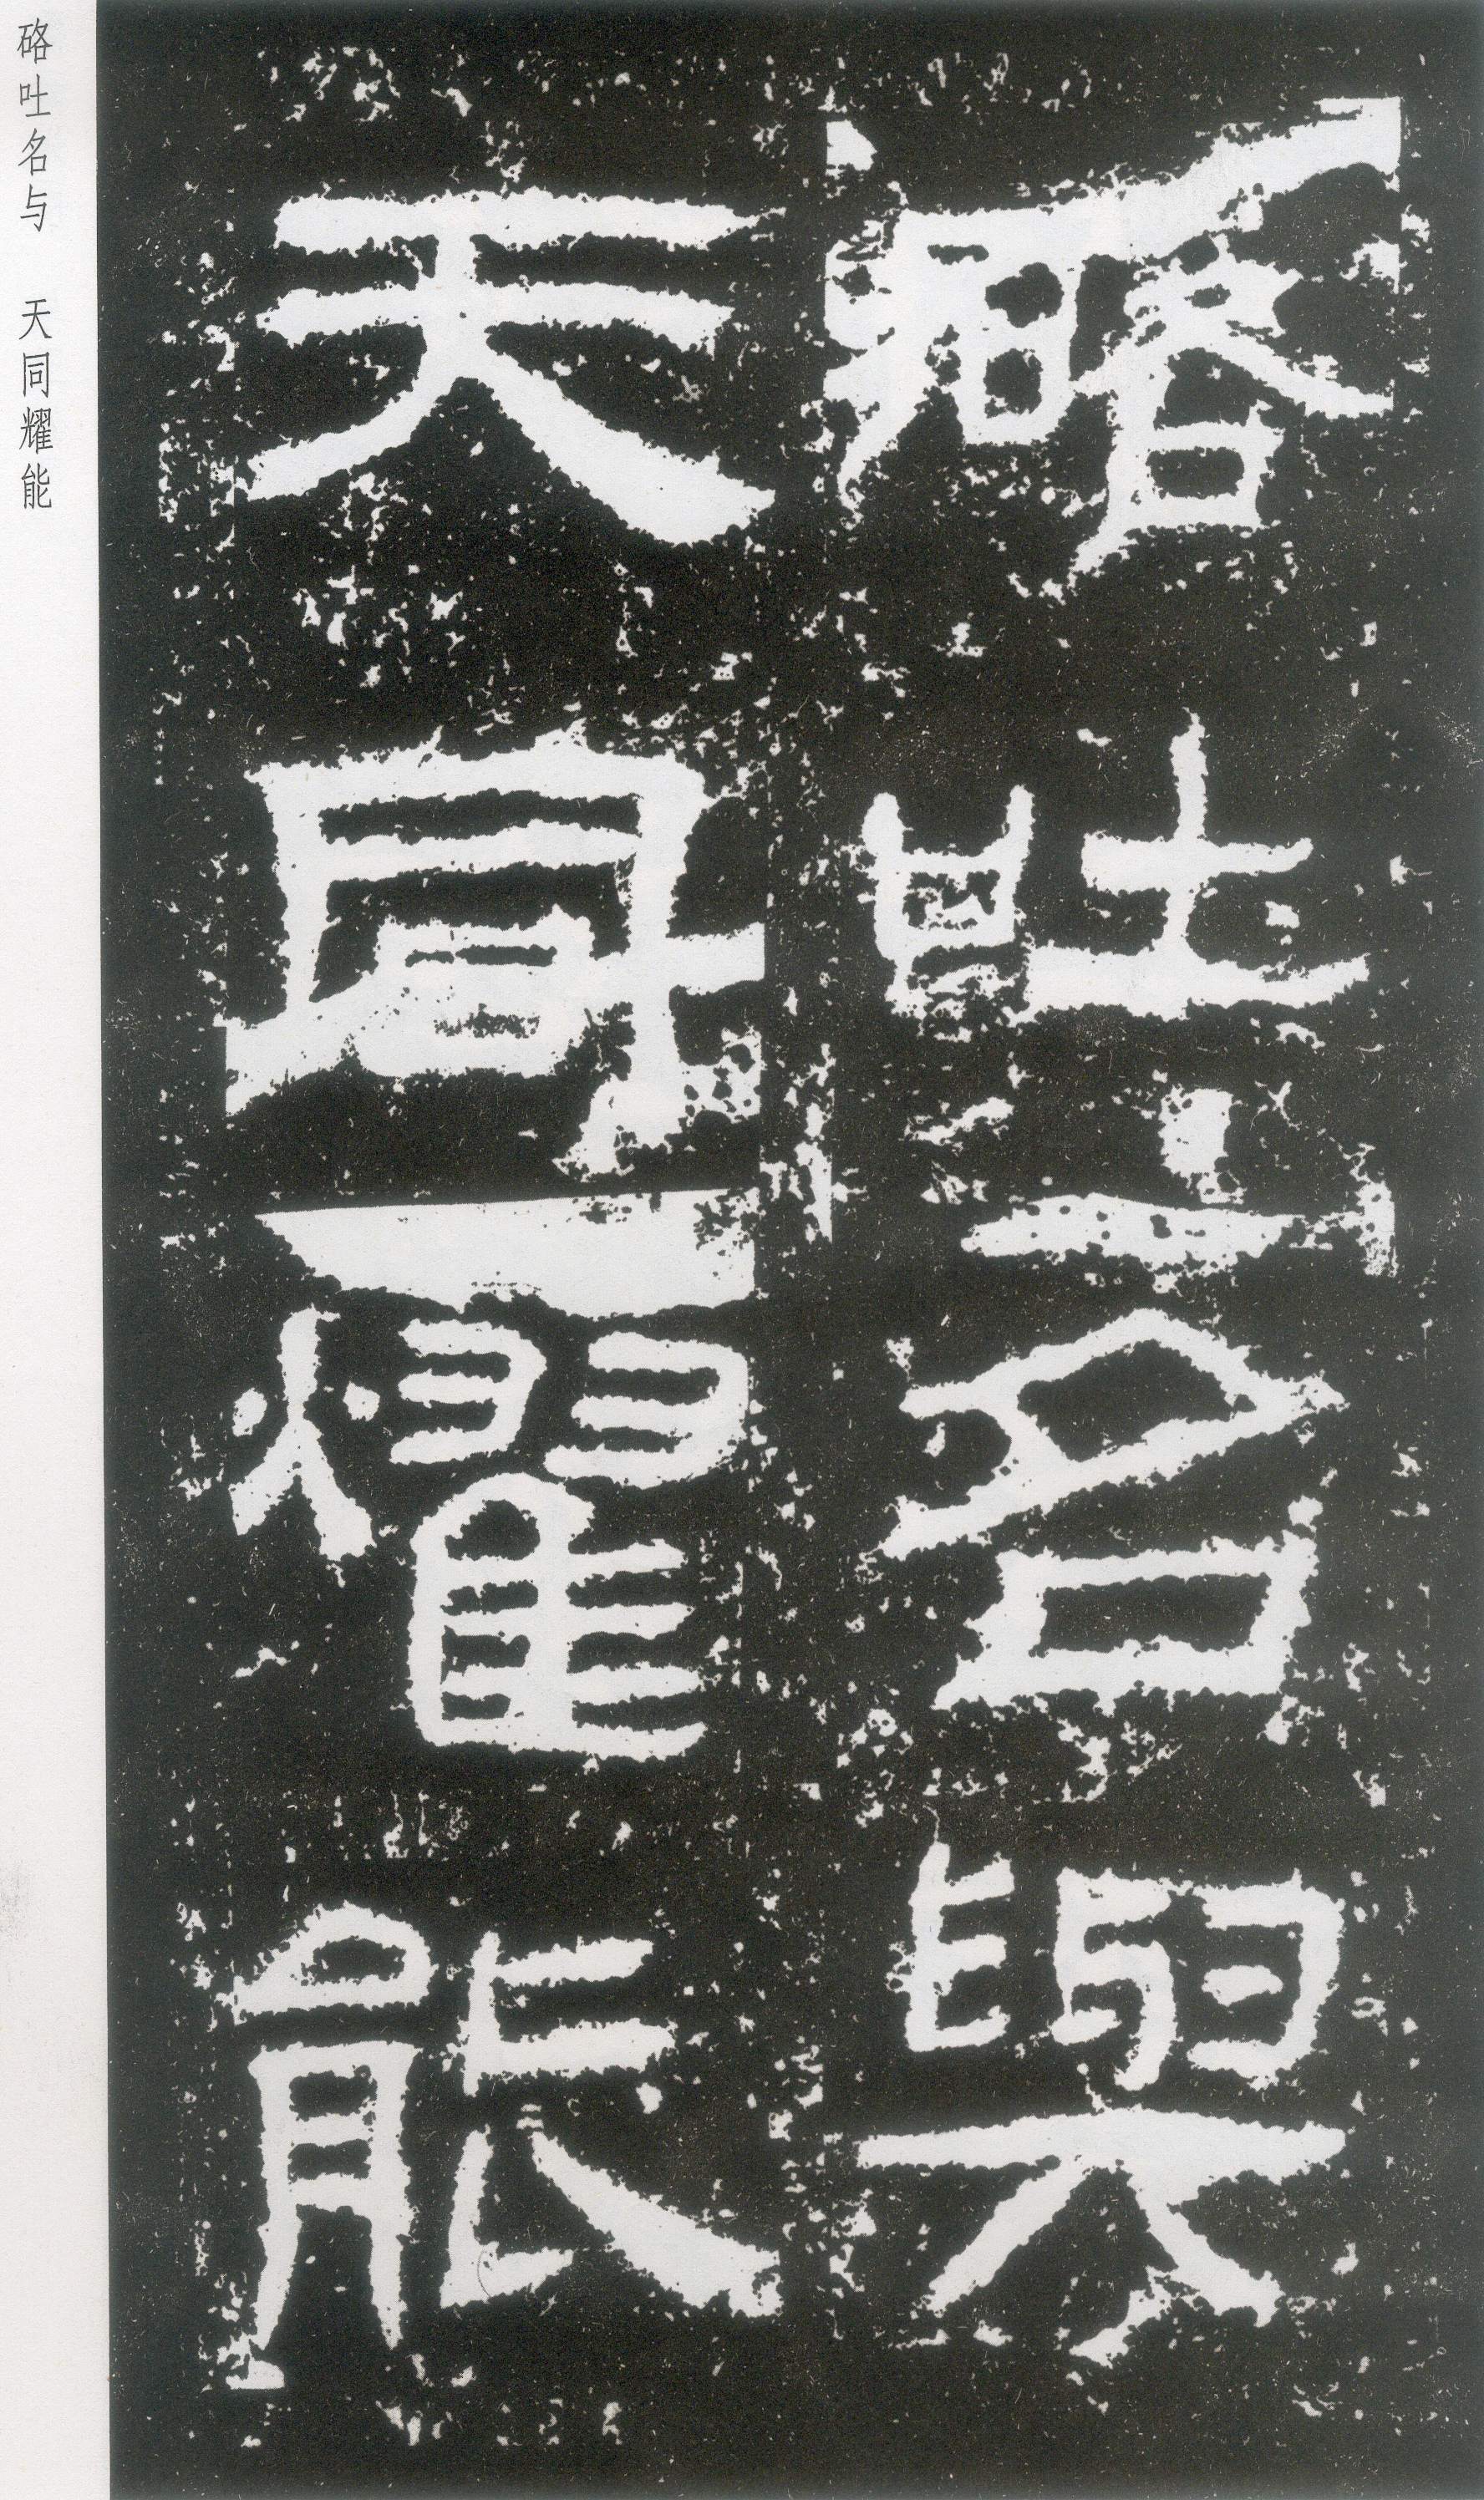 硌吐名與
天同燿能
硌吐名与 天同耀能